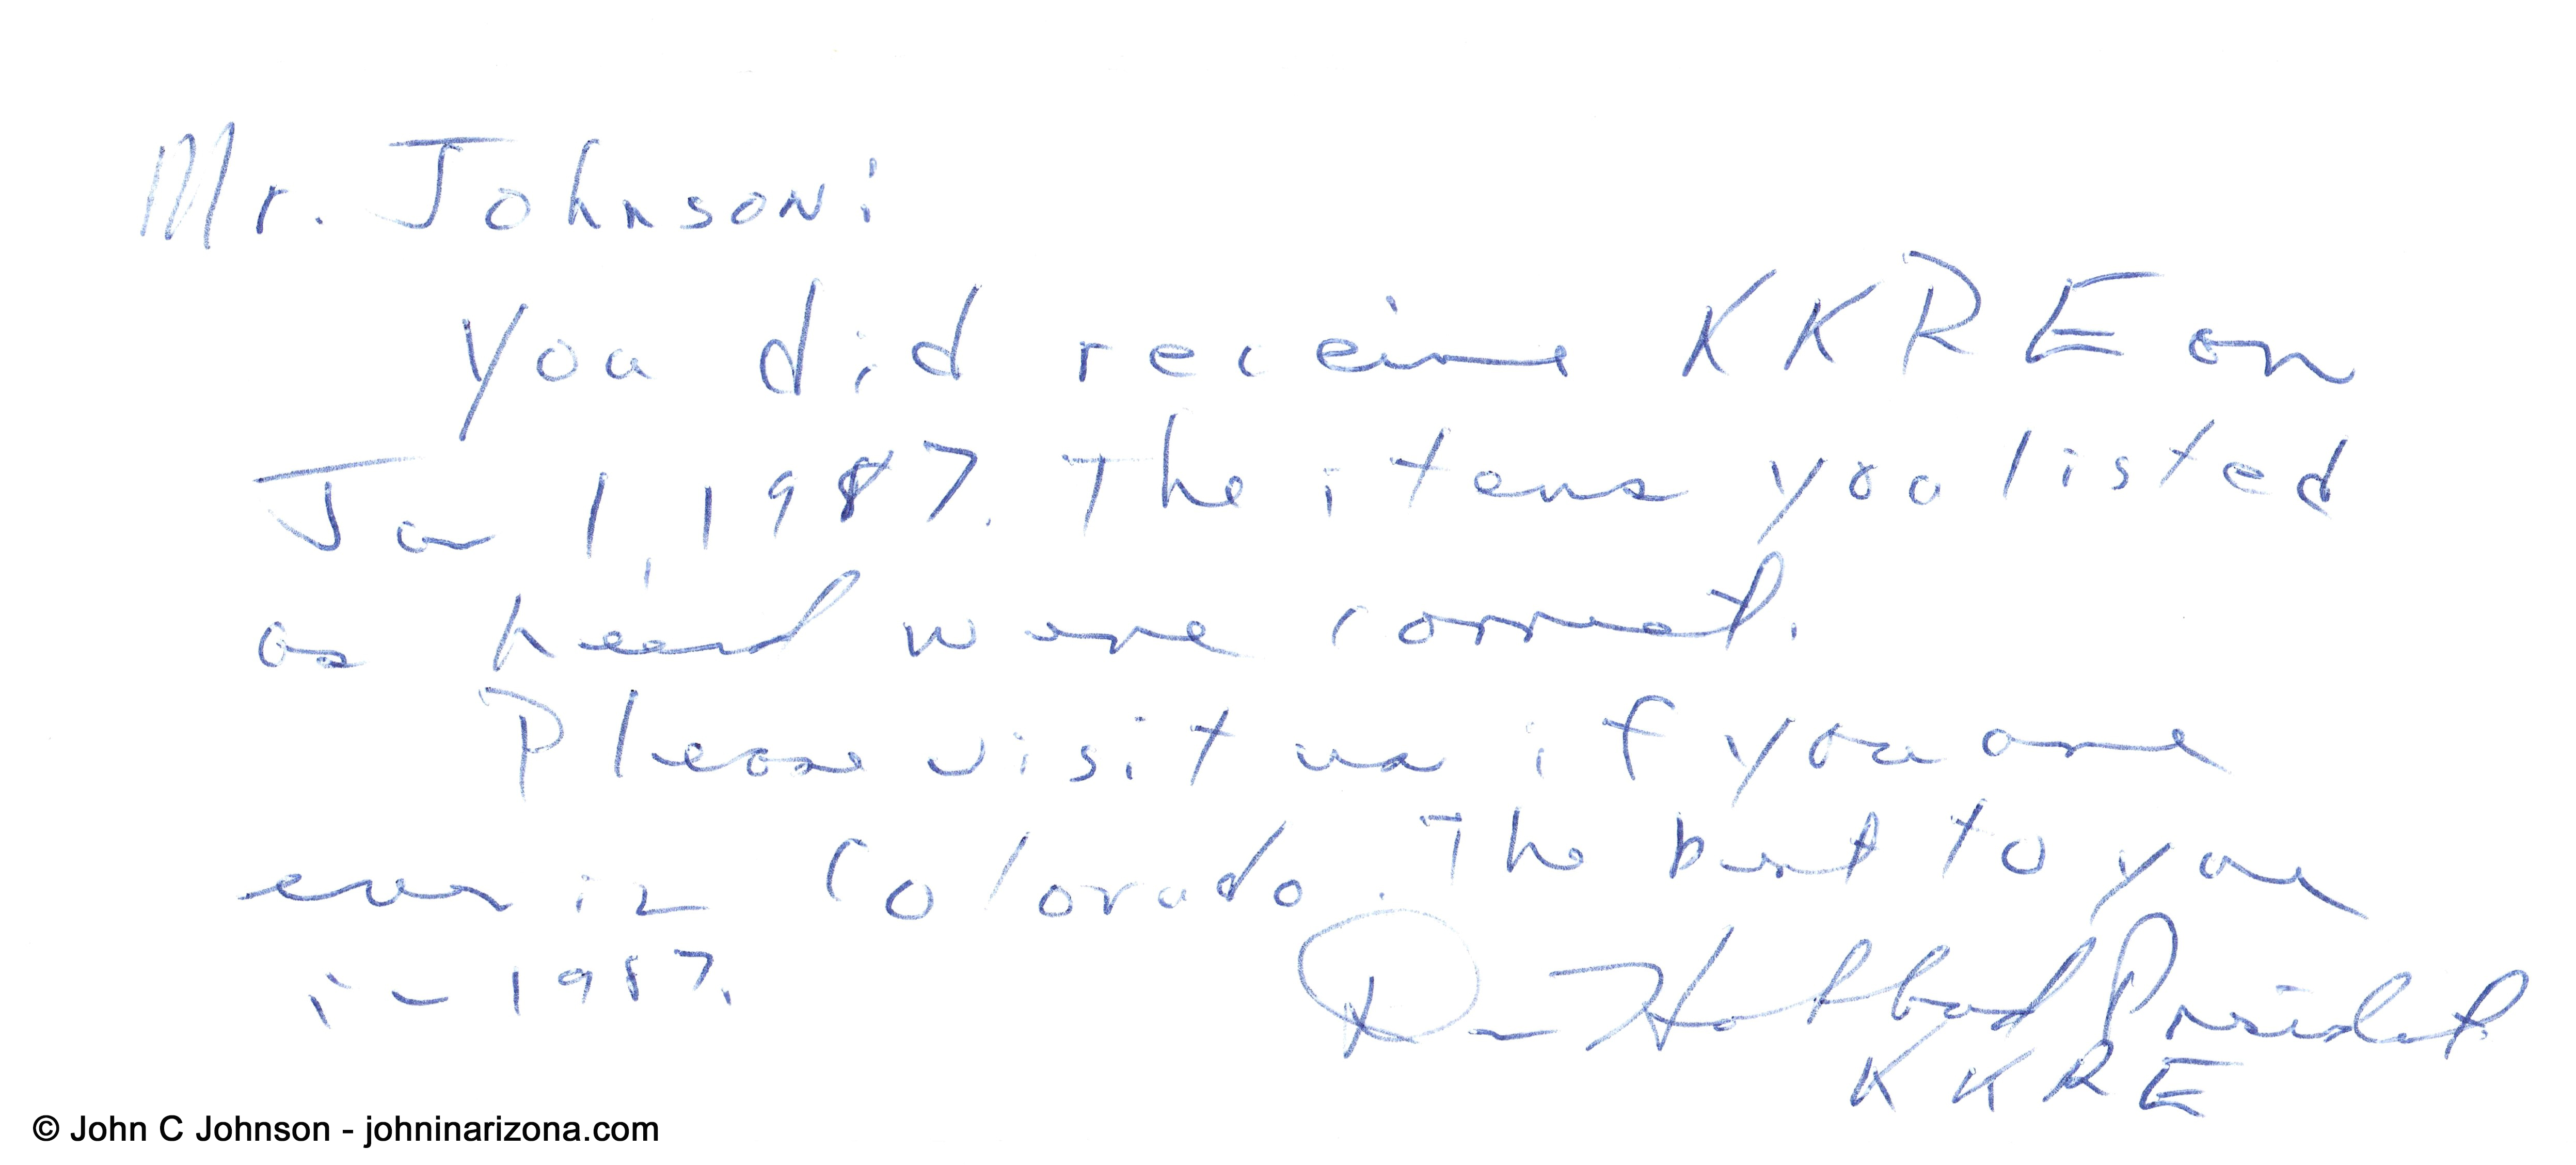 Mr. Johnson:
You did receive KKRE on
Jan 1, 1987. The items you listed
as heard were correct.
Please visit us if you are
ever in Colorado. The best to you
in 1987.
President
KKRE
© John C Johnson - johninarizona.com